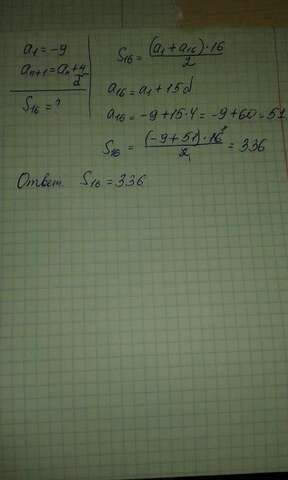 a₁ = -9
aₙ₊₁ = aₙ + 4
d
S₁₆ = ?
S₁₆ = (a₁ + a₁₆) · 16 / 2
a₁₆ = a₁ + 15d
a₁₆ = -9 + 15 · 4 = -9 + 60 = 51
S₁₆ = (-9 + 51) · 16⁸ / 2₁ = 336
Ответ. S₁₆ = 336